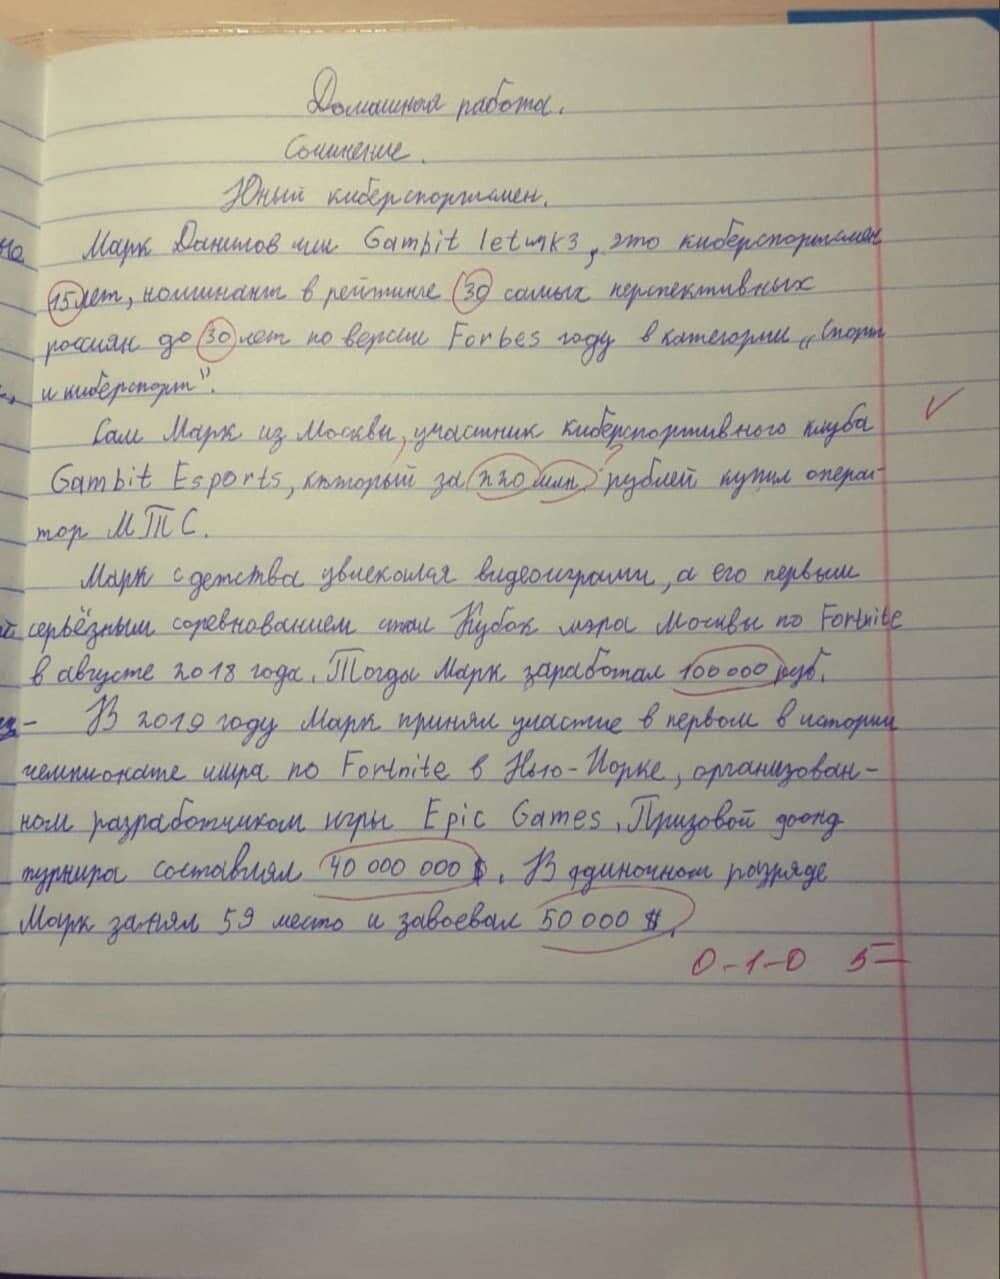 Домашняя работа.
Сочинение.
Юный киберспортсмен.
Марк Данилов или Gambit letw1k3, это киберспортсмен
15 лет, номинант в рейтинге 30 самых перспективных
россиян до 30 лет по версии Forbes году в категории „Спорт
и киберспорт".
Сам Марк из Москвы, участник киберспортивного клуба
Gambit Esports, который за 220 млн. рублей купил опера-
тор МТС.
Марк с детства увлекался видеоиграми, а его первым
серьёзным соревнованием стал Кубок мэра Москвы по Fortnite
в августе 2018 года. Тогды Марк заработал 100 000 руб.
В 2019 году Марк принял участие в первом в истории
чемпионате мира по Fortnite в Нью-Йорке, организован-
ном разработчиком игры Epic Games. Призовой фонд
турнира составлял 40 000 000 $. В одиночном разряде
Марк занял 59 место и завоевал 50 000 $.
0-1-0 5-